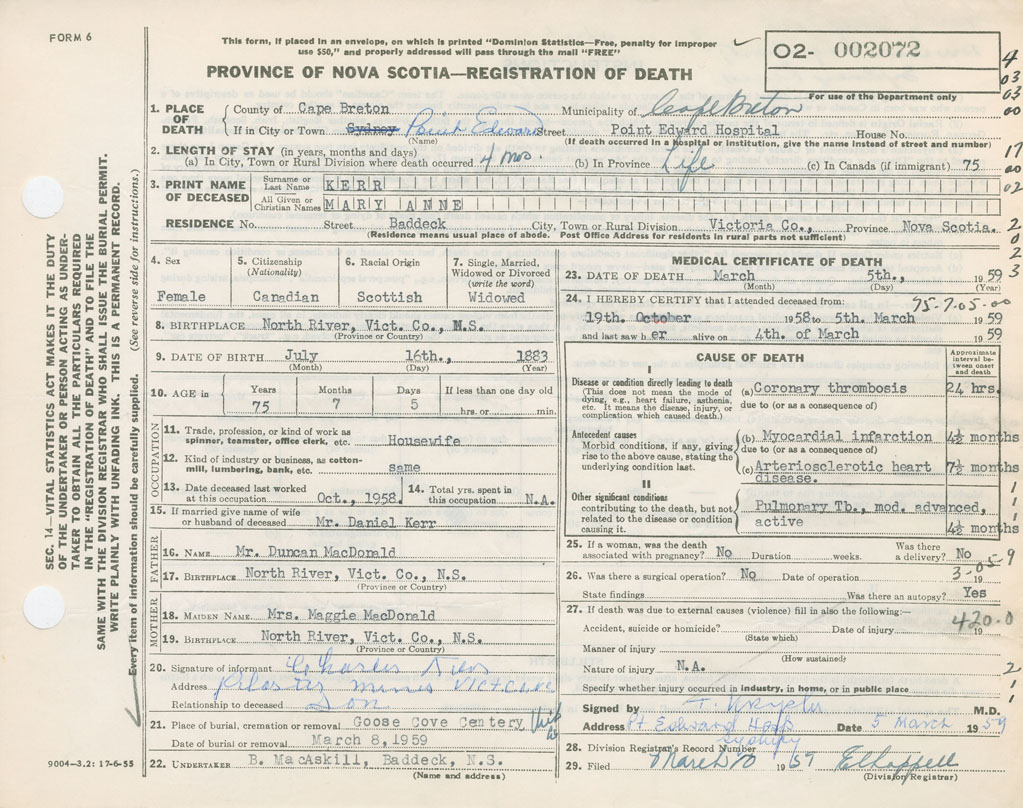 FORM 6
This form, if placed in an envelope, on which is printed "Dominion Statistics—Free, penalty for improper
use $50," and properly addressed will pass through the mail "FREE"
O2- 002072
For use of the Department only
PROVINCE OF NOVA SCOTIA—REGISTRATION OF DEATH
4
03
03
00
17
00
02
2
0
2
3
1. PLACE OF DEATH
County of Cape Breton Municipality of Cape Breton
If in City or Town Sydney Point Edward Street Point Edward Hospital House No.
(Name) (If death occurred in a hospital or institution, give the name instead of street and number)
2. LENGTH OF STAY (in years, months and days)
(a) In City, Town or Rural Division where death occurred. 4 mos. (b) In Province Life (c) In Canada (if immigrant) 75
3. PRINT NAME OF DECEASED
Surname or Last Name KERR
All Given or Christian Names MARY ANNE
RESIDENCE No. Street Baddeck City, Town or Rural Division Victoria Co., Province Nova Scotia.
(Residence means usual place of abode. Post Office Address for residents in rural parts not sufficient)
SEC. 14—VITAL STATISTICS ACT MAKES IT THE DUTY
OF THE UNDERTAKER OR PERSON ACTING AS UNDER-
TAKER TO OBTAIN ALL THE PARTICULARS REQUIRED
IN THE "REGISTRATION OF DEATH" AND TO FILE THE
SAME WITH THE DIVISION REGISTRAR WHO SHALL ISSUE THE BURIAL PERMIT.
WRITE PLAINLY WITH UNFADING INK. THIS IS A PERMANENT RECORD.
Every item of information should be carefully supplied. (See reverse side for instructions.)
4. Sex
Female
5. Citizenship
(Nationality)
Canadian
6. Racial Origin
Scottish
7. Single, Married,
Widowed or Divorced
(write the word)
Widowed
8. BIRTHPLACE North River, Vict. Co., N.S.
(Province or Country)
9. DATE OF BIRTH July 16th., 1883
(Month) (Day) (Year)
10. AGE in
Years Months Days If less than one day old
75 7 5 hrs. or min.
OCCUPATION
11. Trade, profession, or kind of work as
spinner, teamster, office clerk, etc. Housewife
12. Kind of industry or business, as cotton-
mill, lumbering, bank, etc. same
13. Date deceased last worked
at this occupation Oct., 1958
14. Total yrs. spent in
this occupation N.A.
15. If married give name of wife
or husband of deceased Mr. Daniel Kerr
FATHER
16. NAME Mr. Duncan MacDonald
17. BIRTHPLACE North River, Vict. Co., N.S.
(Province or Country)
MOTHER
18. MAIDEN NAME Mrs. Maggie MacDonald
19. BIRTHPLACE North River, Vict. Co., N.S.
(Province or Country)
20. Signature of informant Charles
Address Plaster mines Vict
Relationship to deceased Son
21. Place of burial, cremation or removal Goose Cove Cemtery,
Date of burial or removal March 8,1959
22. UNDERTAKER B. MacAskill, Baddeck, N.S.
(Name and address)
9004—3.2: 17-6-55
MEDICAL CERTIFICATE OF DEATH
23. DATE OF DEATH March 5th., 1959
(Month) (Day) (Year)
24. I HEREBY CERTIFY that I attended deceased from: 75-7-05-00
19th. October 1958 to 5th. March 1959
and last saw h er alive on 4th. of March 1959
CAUSE OF DEATH
Approximate
interval be-
tween onset
and death
I
Disease or condition directly leading to death
(This does not mean the mode of
dying, e.g., heart failure, asthenia,
etc. It means the disease, injury, or
complication which caused death.)
(a) Coronary thrombosis 24 hrs.
due to (or as a consequence of)
Antecedent causes
Morbid conditions, if any, giving
rise to the above cause, stating the
underlying condition last.
(b) Myocardial infarction 4½ months
due to (or as a consequence of)
(c) Arteriosclerotic heart disease. 7½ months
II
Other significant conditions
contributing to the death, but not
related to the disease or condition
causing it.
Pulmonary Tb., mod. advanced,
active 4½ months
1
1
1
25. If a woman, was the death
associated with pregnancy? No Duration weeks. Was there
a delivery? No
26. Was there a surgical operation? No Date of operation 19
3-05-9
State findings Was there an autopsy? Yes
27. If death was due to external causes (violence) fill in also the following:—
Accident, suicide or homicide? Date of injury 19
(State which)
420.0
Manner of injury
(How sustained?)
Nature of injury N.A.
2
Specify whether injury occurred in industry, in home, or in public place
1
Signed by M.D.
Address Pt Edward Hosp Sydney Date 5 March 1959
28. Division Registrar's Record Number
29. Filed March 10 1959
(Division Registrar)